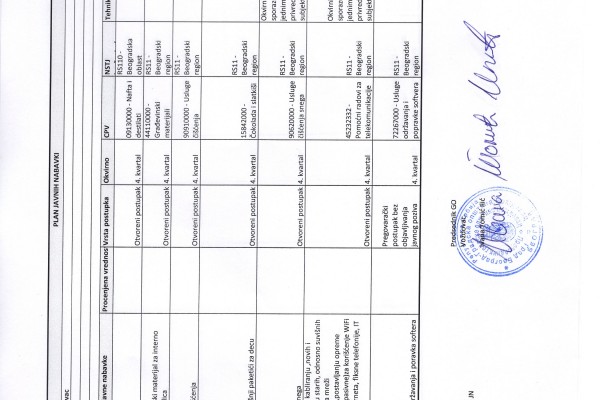 PLAN JAVNIH NABAVKI
vac
avne nabavke
Procenjena vrednos
Vrsta postupka
Okvirno
CPV
NSTJ
Tehnik
Otvoreni postupak
4. kvartal
09130000 - Nafta i
destilati
RS110 -
Beogradska
oblast
ki materijal za interno
lica
Otvoreni postupak
4. kvartal
44110000 -
Građevinski
materijali
RS11 -
Beogradski
region
šćenja
Otvoreni postupak
4. kvartal
90910000 - Usluge
čišćenja
RS11 -
Beogradski
region
Okvirni
sporaz
jednim
privred
subjek
šnji paketići za decu
Otvoreni postupak
4. kvartal
15842000 -
Čokolada i slatkiši
RS11 -
Beogradski
region
nega
Otvoreni postupak
4. kvartal
90620000 - Usluge
čišćenja snega
RS11 -
Beogradski
region
Okvirni
sporaz
jednim
privred
subjekt
kabliranju ,novih i
starih, odnosno suvišnih
a mreži
postavljanju opreme
pasivne)za korišćenje WiFi
meta, fiksne telefonije, IT
Otvoreni postupak
4. kvartal
45232332 -
Pomoćni radovi za
telekomunikacije
RS11 -
Beogradski
region
Okvirni
sporaz
jednim
privred
subjekt
ržavanja i poravka softera
Pregovarački
postupak bez
objavljivanja
javnog poziva
4. kvartal
72267000 - Usluge
održavanja i
popravke softvera
RS11 -
Beogradski
region
Predsednik GO
Voždovac
Ilić
JN